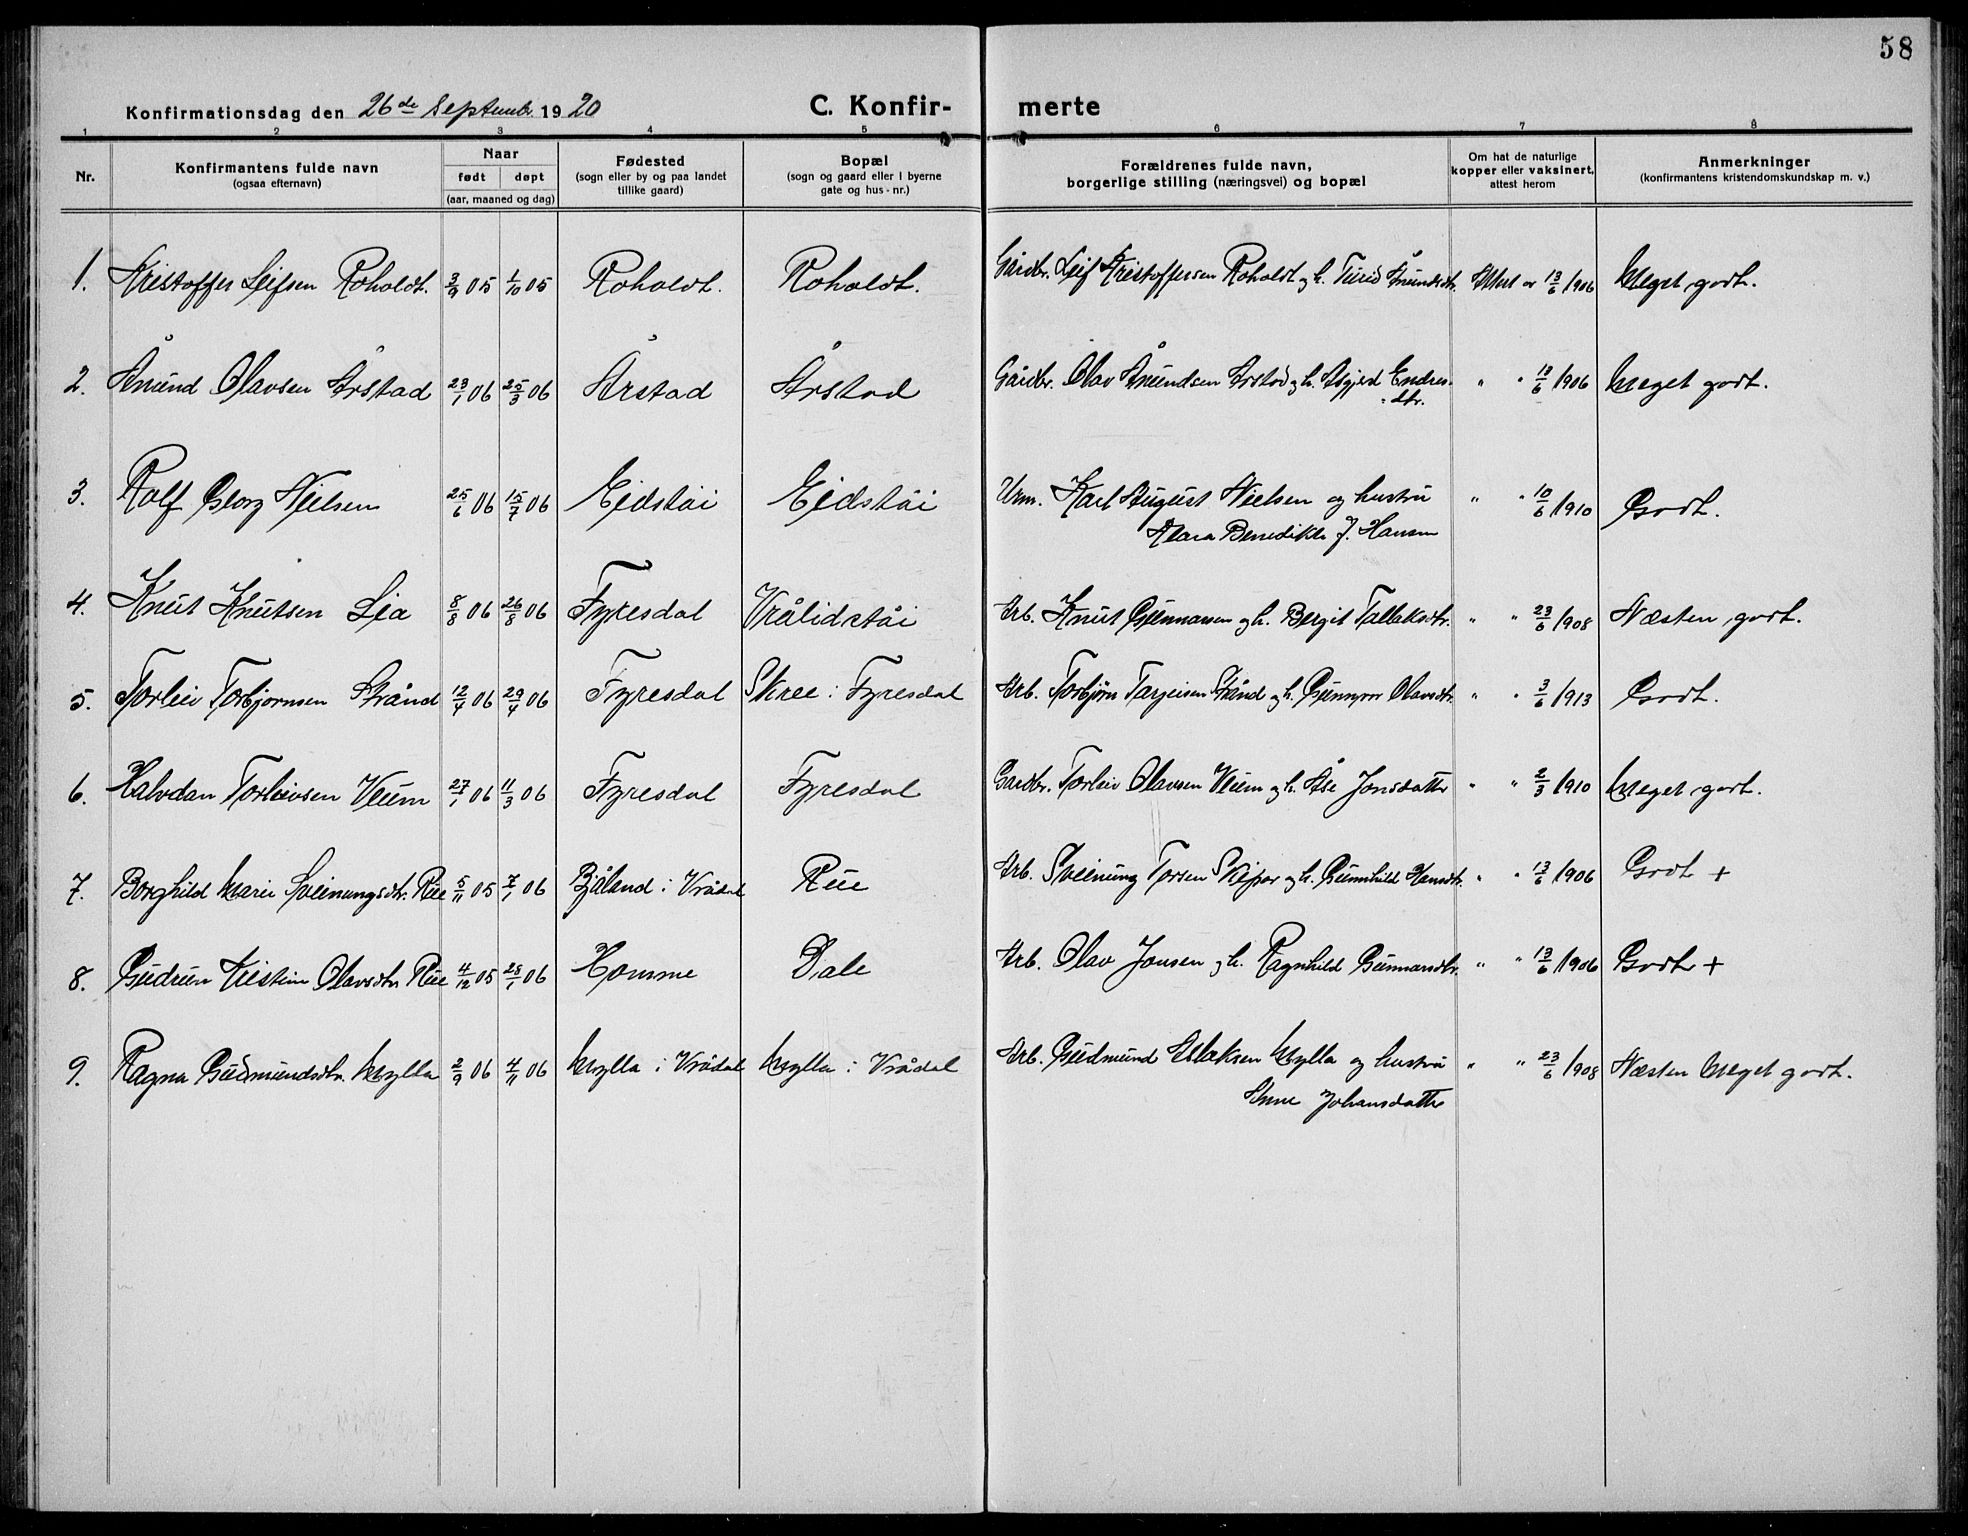 58
Konfirmationsdag den 26de Septembr. 1920 C. Konfir- merte
1 2 3 4 5 6 7 8
Nr. Konfirmantens fulde navn (ogsaa efternavn) Naar født døpt (aar, maaned og dag) Fødested (sogn eller by og paa landet tillike gaard) Bopæl (sogn og gaard eller i byerne gate og hus-nr.) Forældrenes fulde navn, borgerlige stilling (næringsvei) og bopæl Om hat de naturlige kopper eller vaksinert, attest herom Anmerkninger (konfirmantens kristendomskundskap m. v.)
1. Kristoffer Leifsen Roholdt. 3/9 05 1/10 05 Roholdt. Roholdt. Gårdbr. Leif Kristoffersen Roholdt og h. Turid Ånundsdtr. Attest av 13/6 1906 Meget godt.
2. Ånund Olavsen Årstad 23/1 06 25/3 06 Årstad Årstad Gårdbr. Olav Ånundsen Årstad og h. Asgjerd Endres-
dtr. " " 18/6 1906 Meget godt.
3. Rolf Georg Nielsen 25/6 06 15/7 06 Eidstøi Eidstøi Urm. Karl August Nielsen og hustru " " 10/6 1910 Godt.
Klara Benedikte J. Hansen
4. Knut Knutsen Lia 8/8 06 26/8 06 Fyresdal Vrålidstøi Arb. Knut Gunnarsen og h. Bergit Tallaksdtr. " " 23/6 1908 Næsten godt.
5. Torleiv Torbjørnsen Strånd 12/4 06 29/4 06 Fyresdal Skree i Fyresdal Arb. Torbjørn Tarjeisen Strånd og h. Gunnhild Olavsdtr. " " 3/6 1913 Godt.
6. Halvdan Torleivsen Veum 27/1 06 11/3 06 Fyresdal Fyresdal Gardbr. Torleiv Olavsen Veum og h. Åse Jonsdatter " " 2/3 1910 Meget godt.
7. Borghild Marie Sveinungsdtr. Rue 5/11 05 7/1 06 Bjåland i Vrådal Rue Arb. Sveinung Torsen og h. Gunnhild Hansdtr. " " 13/6 1906 Godt +
8. Gudrun Kristine Olavsdtr. Rue 4/12 05 28/1 06 Homme Dale Arb. Olav Jonsen og h. Ragnhild Gunnarsdtr. " " 13/6 1906 Godt +
9. Ragna Gudmundsdtr. Mylla 2/9 06 4/11 06 Mylla i Vrådal Mylla i Vrådal Arb. Gudmund Aslaksen Mylla og hustru " " 23/6 1908 Næsten Meget godt.
Anne Johansdatter